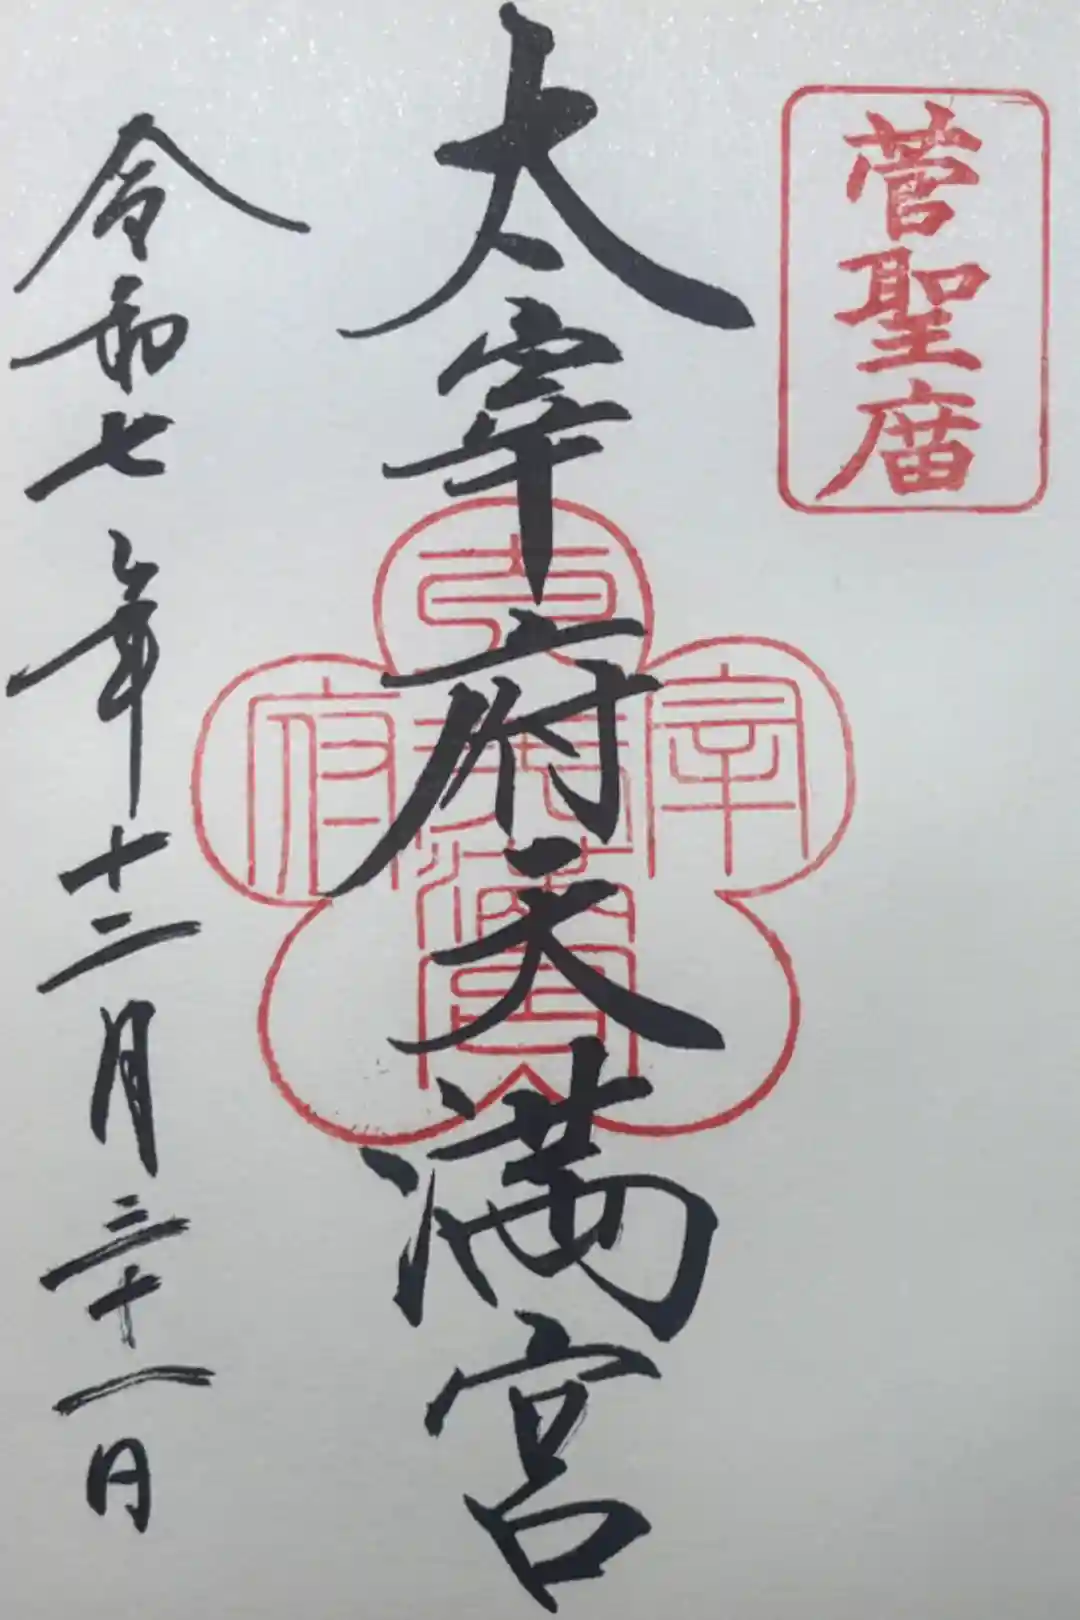 菅聖庿
太宰府天満宮
太宰府天満宮
令和七年十二月三十一日